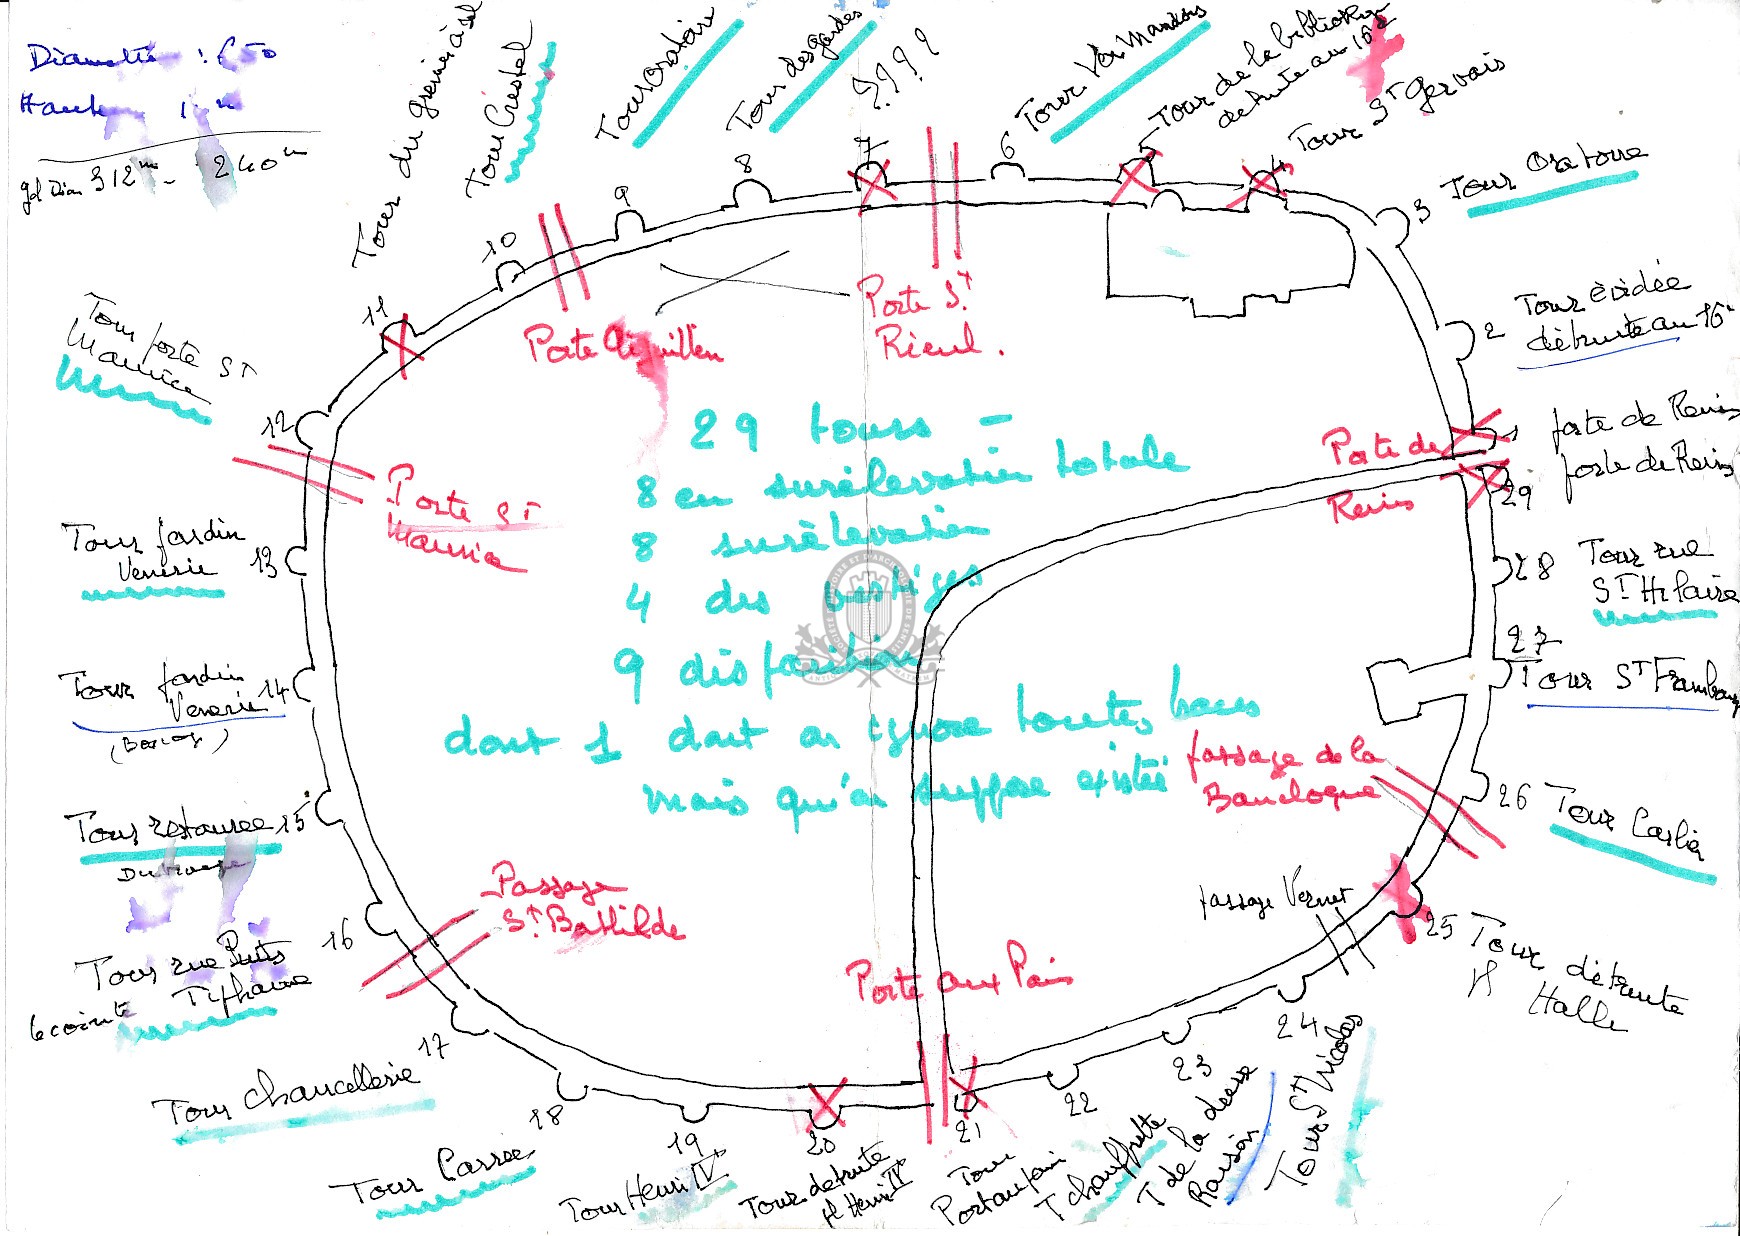 Diamètre : 650
gd Diam 312m - 240m
Tour du grenier à sel
Tour Crestel
Tour Oratoire
Tour des gardes
????
Tour
Tour de la bibliothèque
detruite au 16è
Tour St Gervais
Tour Oratoire
Tour évidée
détruite au 16è
porte de Reims
porte de Reims
Tour rue
St Hilaire
Tour St Frambourg
Tour Carlier
Tour détruite
H Halle
Tour St Nicolas
T de la deesse
Raison
T chauffrette
Tour
Port aux pain
Tour detruite
H Henri IV
Tour Henri IV
Tour Carrée
Tour Chancellerie
Tour rue Puits
Tiphaine
lecointe
Tour restaurée
Tour jardin
Venerie
Tour jardin
Venerie
Tour porte St
Maurice
1
2
3
4
5
6
7
8
9
10
11
12
13
14
15
16
17
18
19
20
21
22
23
24
25
26
27
28
29
Porte Aiguillère
Porte St
Rieul.
Porte de
Reims
Porte St
Maurice
Passage
St Bathilde
Porte aux Pains
passage de la
Bancloque
passage Vernet
29 tours -
8 en surélévation totale
8 surélévation
4 des vestiges
9 disparition
dont 1 dont on ignore toutes traces
mais qu'on suppose existée